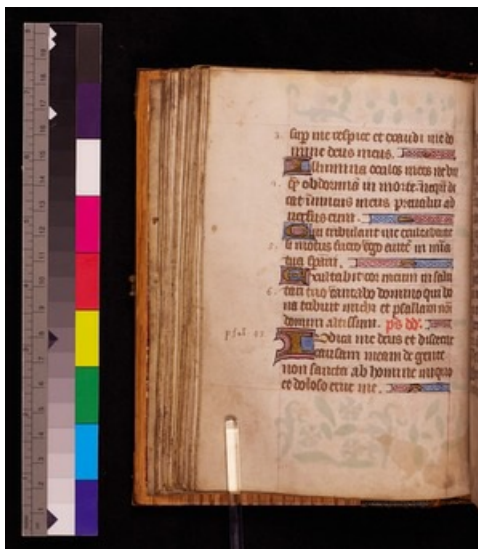 sup me respice et exaudi me do
mine deus meus.
Illumina oculos meos ne un
q̄ȝ obdormiā in morte neq̄n di
cat inimicus meus preualui ad
uersus eum.
Qui tribulant me exultabunt
si motus fuero ego autē in mīa
tua speraui.
Exultabit cor meum in salu
tari tuo cantabo domino qui bo
na tribuit michi et psallam nōi
domini altissimi. ps dd.
psal. 42
Iudica me deus et discerne
causam meam de gente
non sancta ab homine iniquo
et doloso erue me.